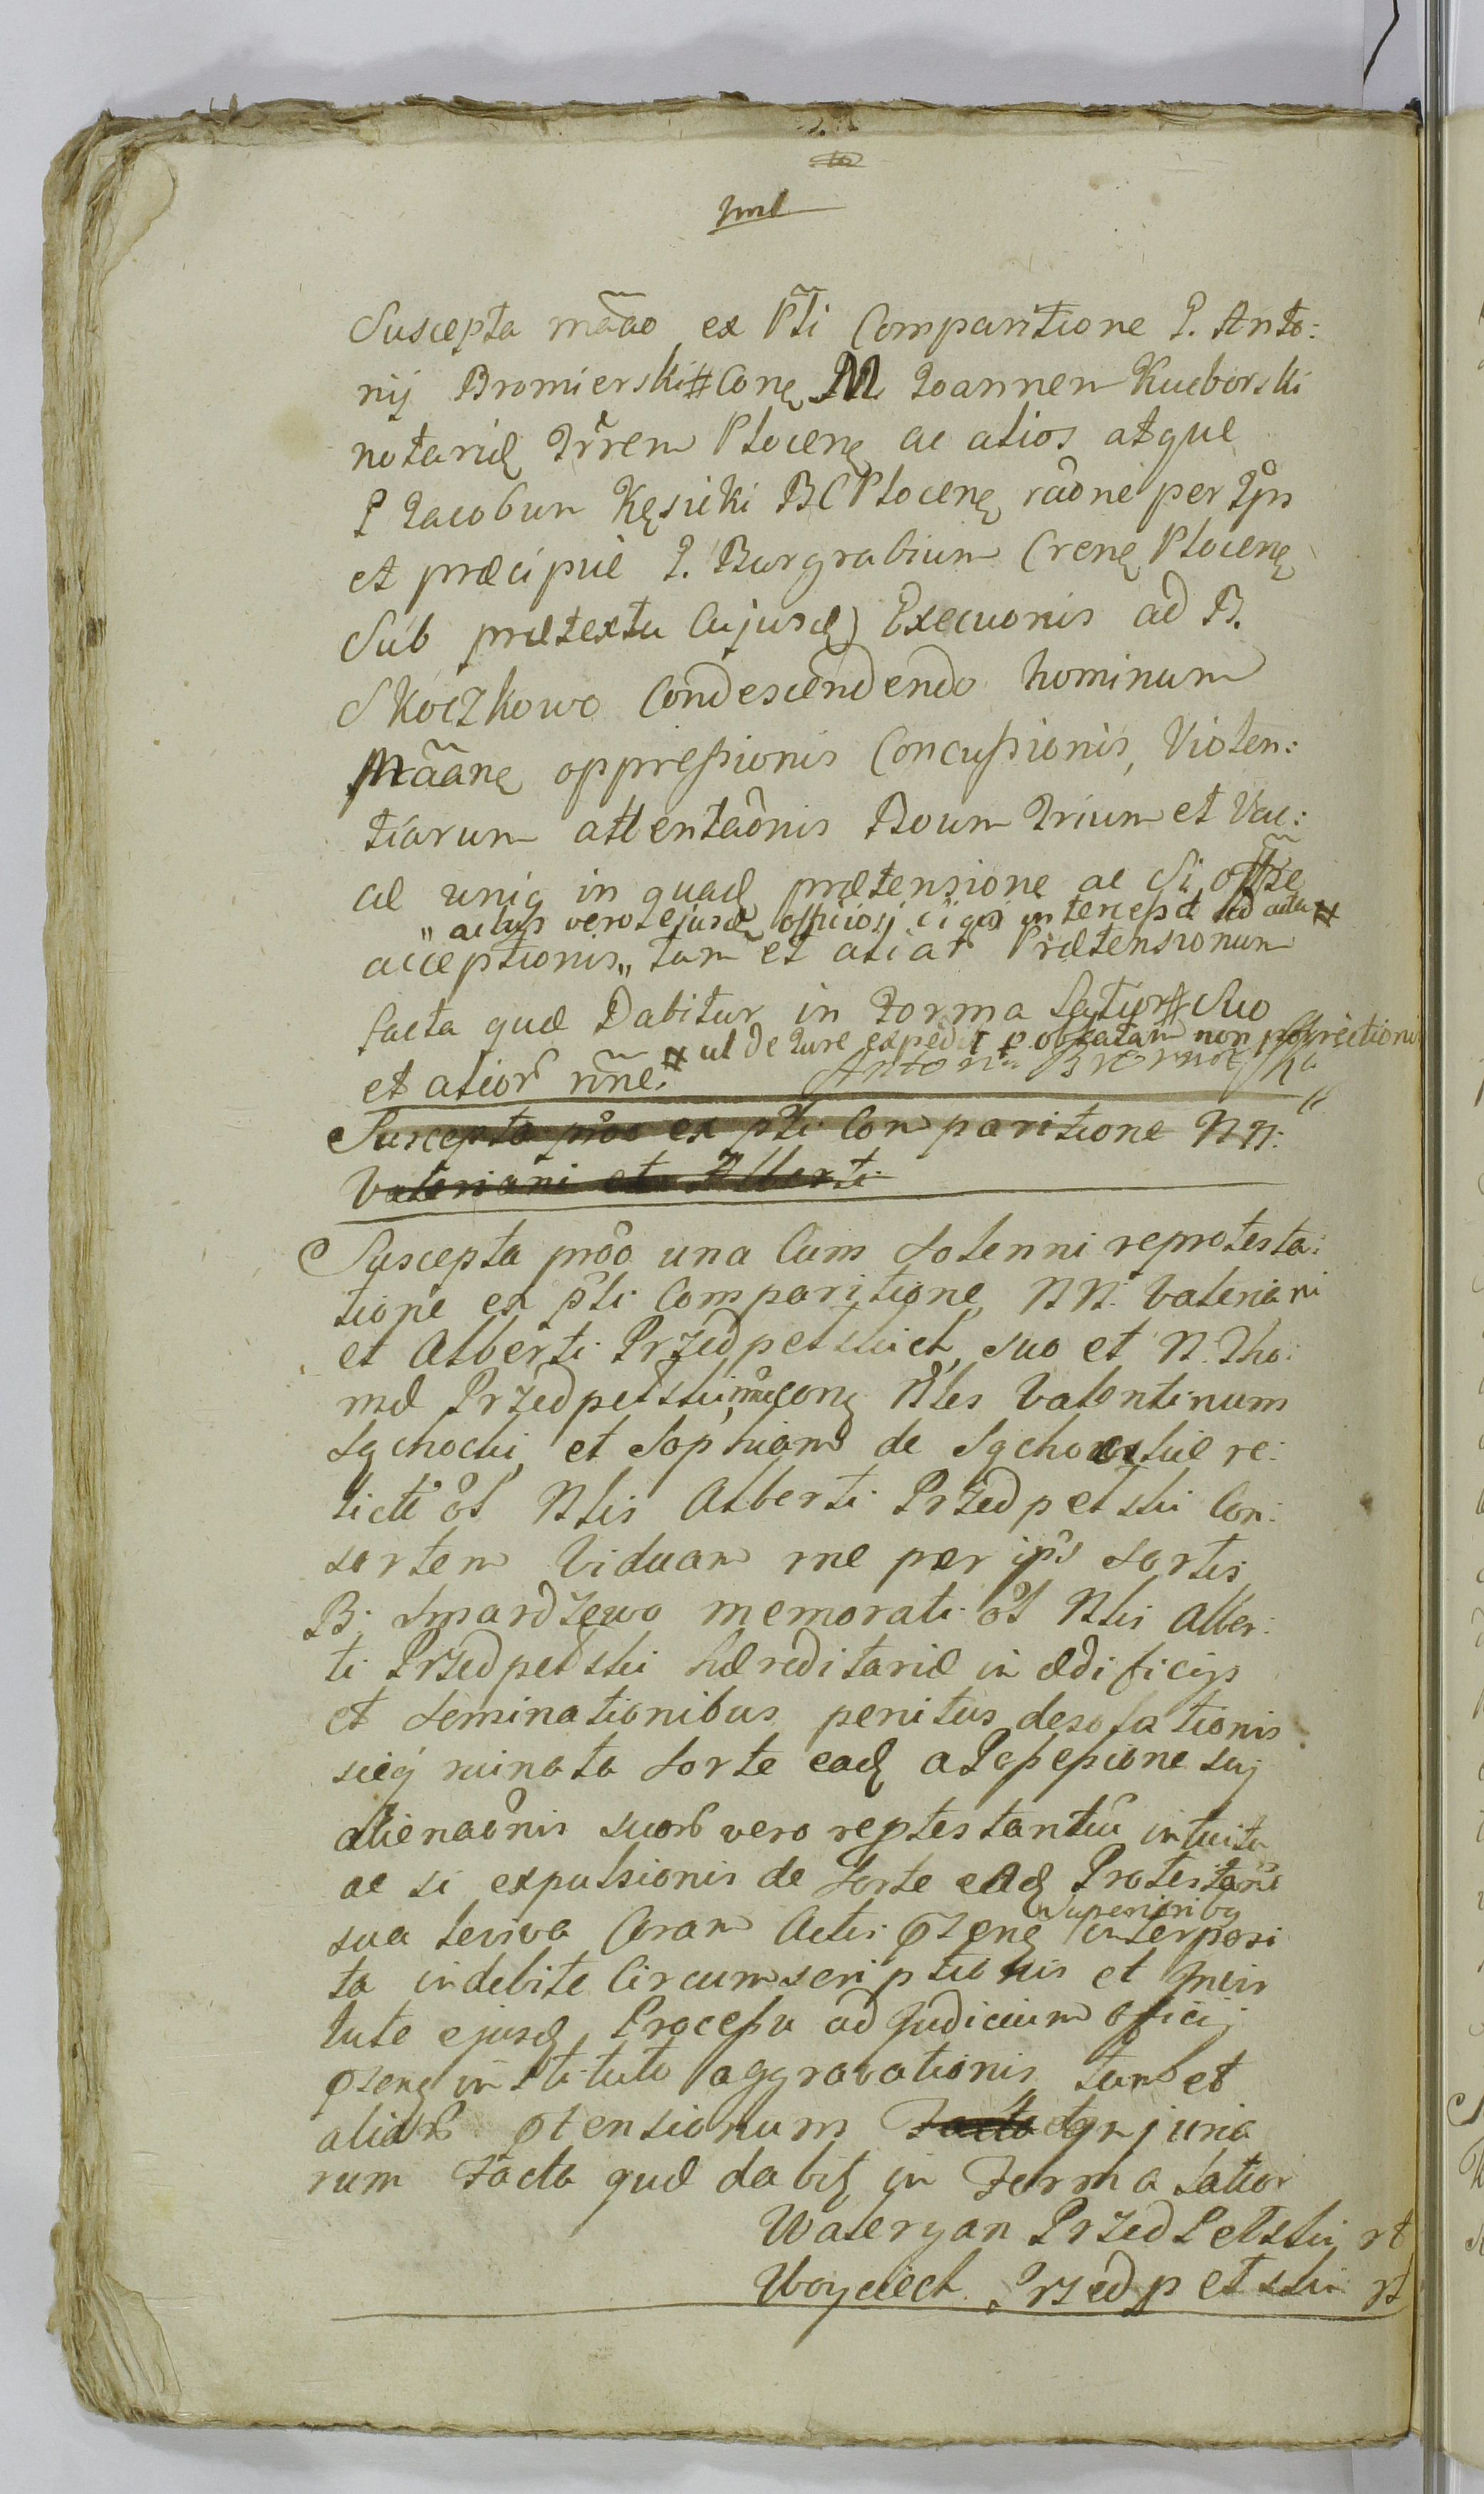 Suscepta mãao ex P̃ti Comparitione P. Anto:
nij Bromierski # Conę M Joannem Kucborski
notariũ Trrem Plocenę ac alios atque
P Jacobum Kęsicki BC Plocenę rãone per Ips
et præcipue P. Burgrabium Crenę Plocenę
Sub prætextu Cujusdę Execuonis ad B.
Skoczkowo Condescendendo hominum
Mãanę oppressionis Concussionis, Violen:
tiarum attentaõnis Boum Trium et Vac:
cæ unig in quadę prætensione ac Si
„ actus vero ejusdę officiosj
acceptionis „ tam et aliar Prætensionum
facta quæ Dabitur in Forma latior # Suo
# ut de Jure expedit p oblatam non
et alior nñe.
Suscepta prõo ex pti Comparitione NN:
Valeriani et Alberti
Suscepta prõo una Cum Solenni reprotesta:
tione ex pti Comparitione NN. Valeriani
et Alberti Przedpelskich suo et N. Tho:
mæ Przedpelski nñe conę Nles Valentinum
Sgchocki et Sophiam de Sgchockie re:
lictã ol Nlis Alberti Przedpelski Con:
sortem Viduam rne per ips Sortis
B. Smardzewo memorati ol Nlis Alber:
ti Przedpelski hæreditariæ in ædificijs
et Seminationibus penitus desolationis
sicq ruinata Sorte eadę a Possessione suj
alienaõnis suor vero reptestantiũ intuitu
ac si expulsionis de Sorte eadę Protestane
Superioribg
sua lesiva Coram Actis ptenę interposi
ta indebite Circumscriptionis et
tute ejusdę Processu ad Judicium officij
ptenę instituto aggravationis tam et
aliar ptensionum Facta et Injuria
rum Facta quæ dabitę in Forma latior
Waleryan PrzedPelski rt
Woyciech Przedpelski rt